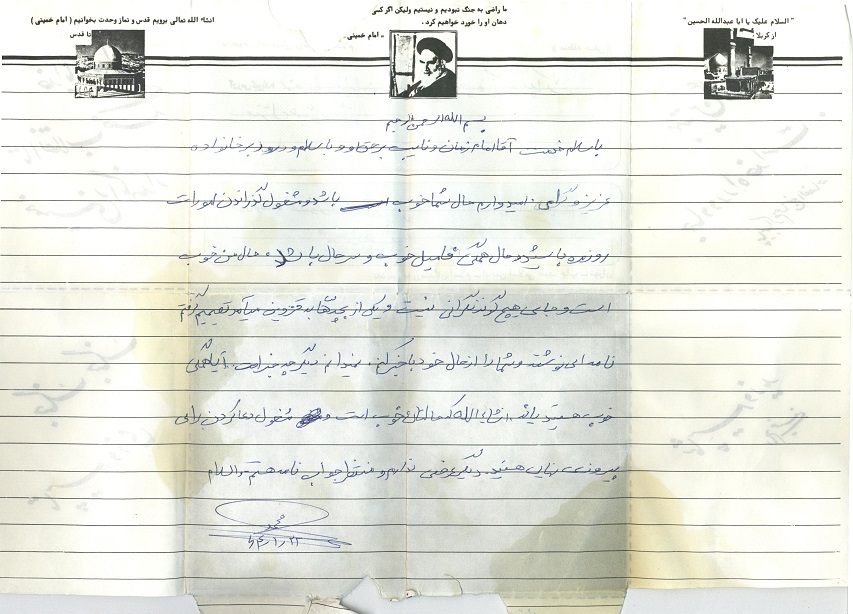 " السلام علیک یا ابا عبدالله الحسین "
از کربلا
ما راضی به جنگ نبودیم و نیستیم ولیکن اگر کسی
دهان او را خورد خواهیم کرد .
- امام خمینی -
انشاء الله تعالی برویم قدس و نماز وحدت بخوانیم ( امام خمینی )
تا قدس
بسم الله الرحمن الرحیم
با سلام خدمت آقا امام زمان و نایب بر حق او و با سلام و درود بر خانواده
عزیز و گرامی. امیدوارم حال شما خوب باشد و مشغول گذراندن امورات
روزمره باشید و حال همگی فامیل خوب و سرحال باشد. حال من خوب
است و جای هیچ گونه نگرانی نیست و یکی از بچه‌ها به قزوین میآمد تصمیم گرفتم
نامه‌ای نوشته و شما را از حال خود با خبر کنم. نمیدانم دیگر چه خبر است. آیا همگی
خوب هستید یا نه. انشاءالله که حالتان خوب است و مشغول دعا کردن برای
پیروزی نهایی هستید. دیگر عرضی ندارم و منتظر جواب نامه هستم. والسلام
محمد
۶۴/۱/۲۲